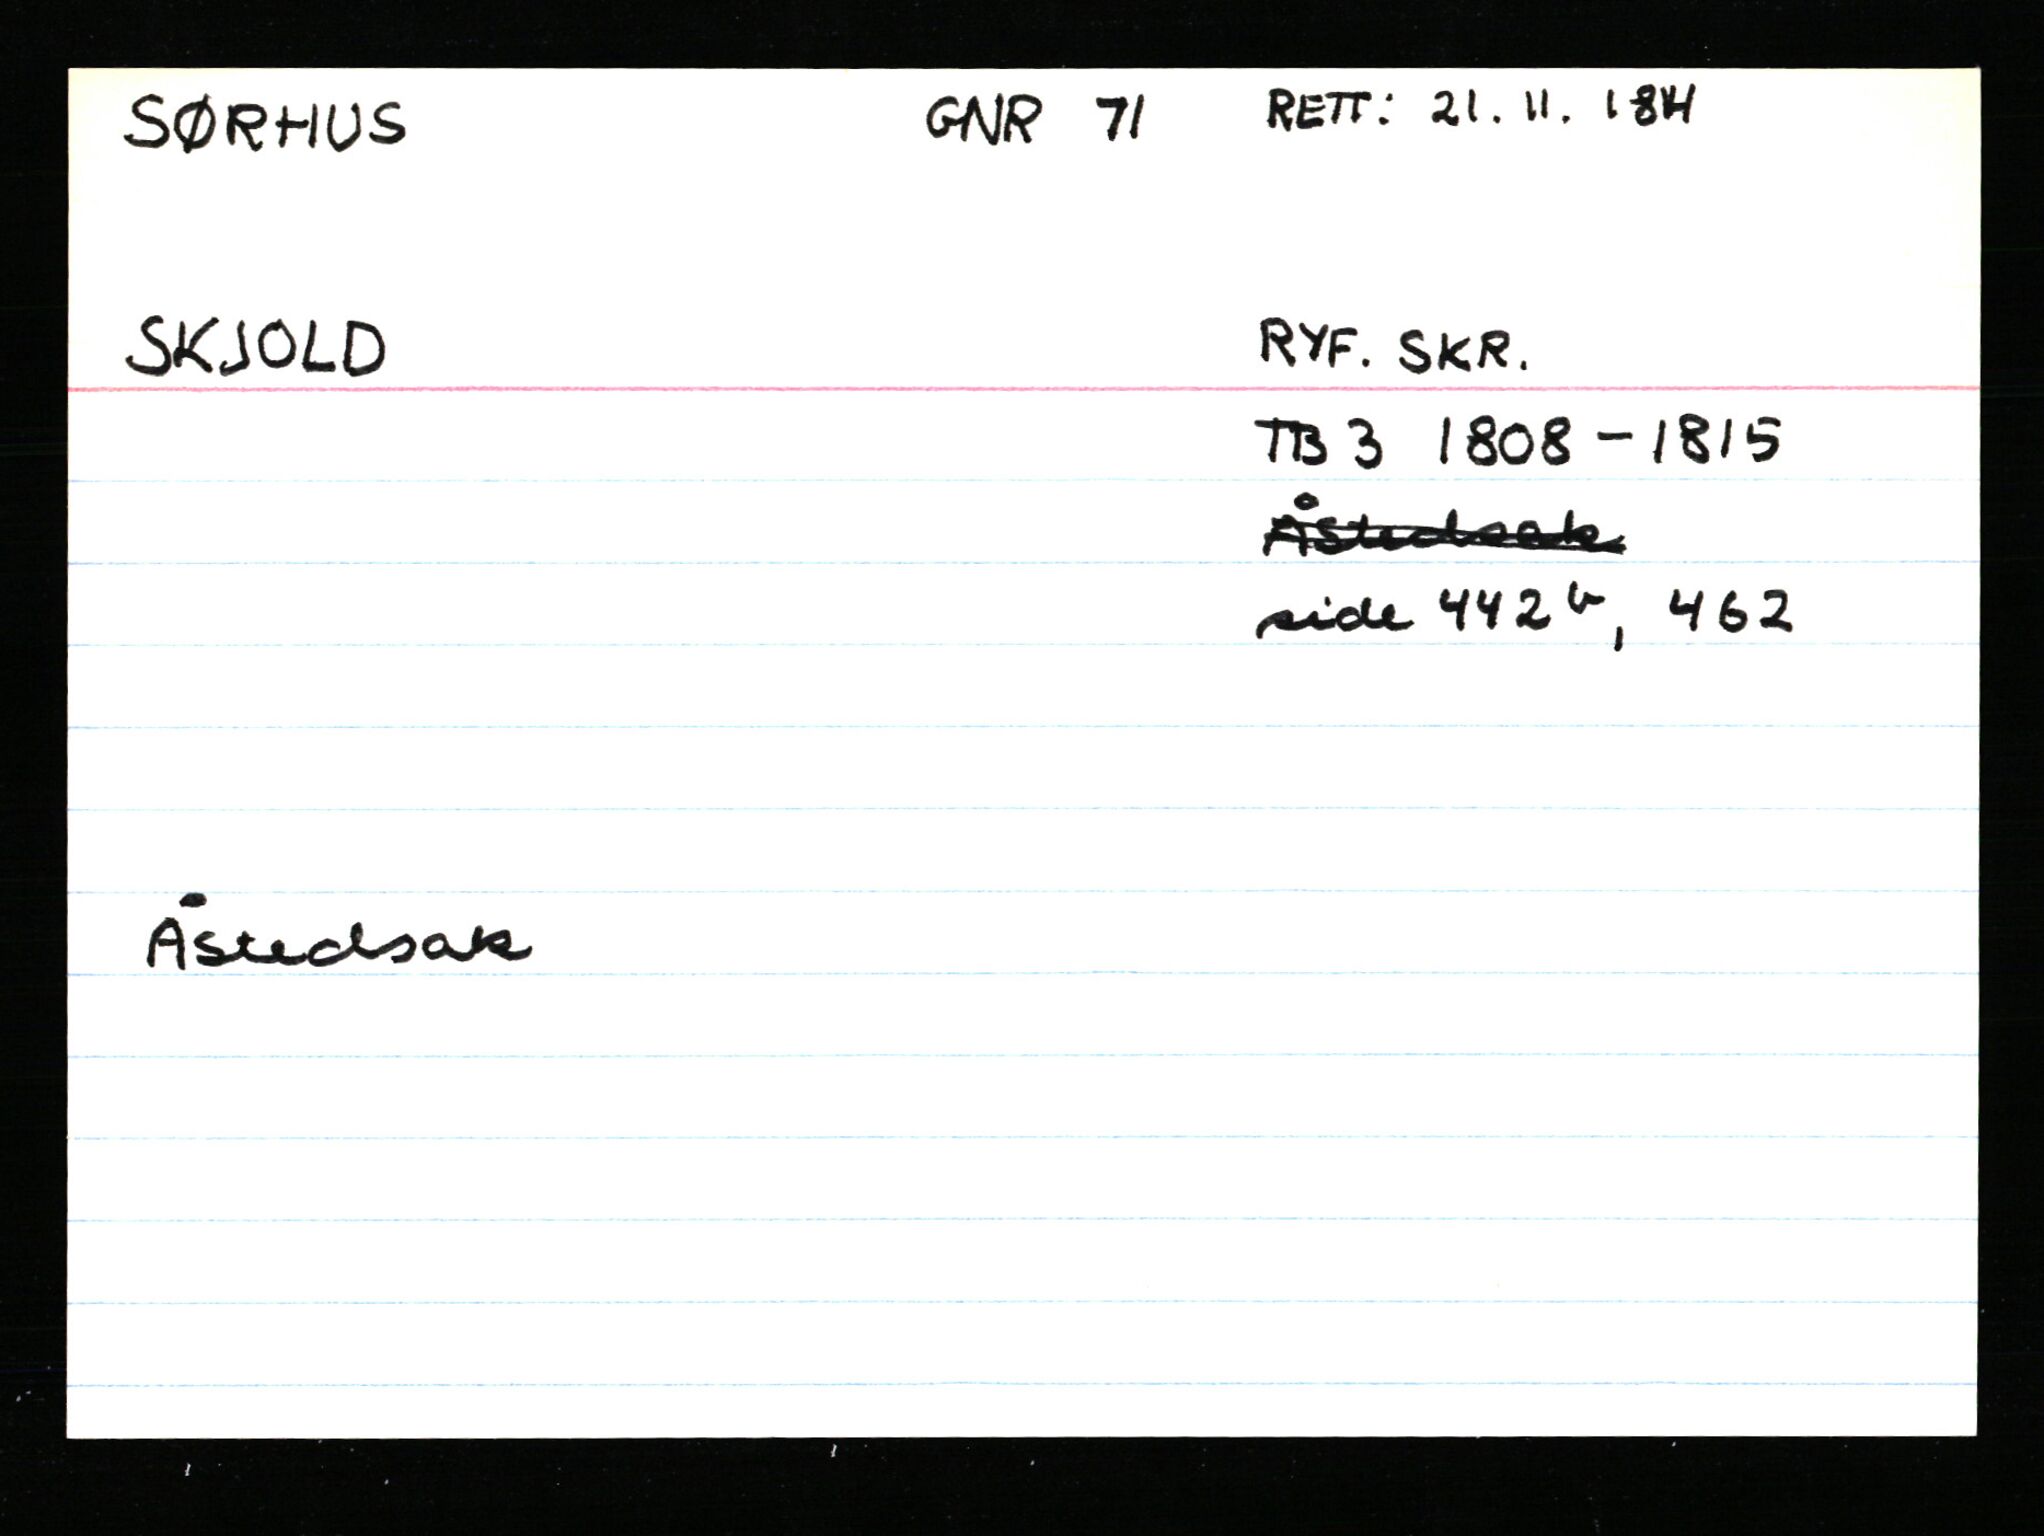 SØRHUS GNR 71 RETT: 21. 11. 1814
SKJOLD RYF. SKR.
TB 3 1808 - 1815
Åstedsak
side 442 b, 462
Åstedsak